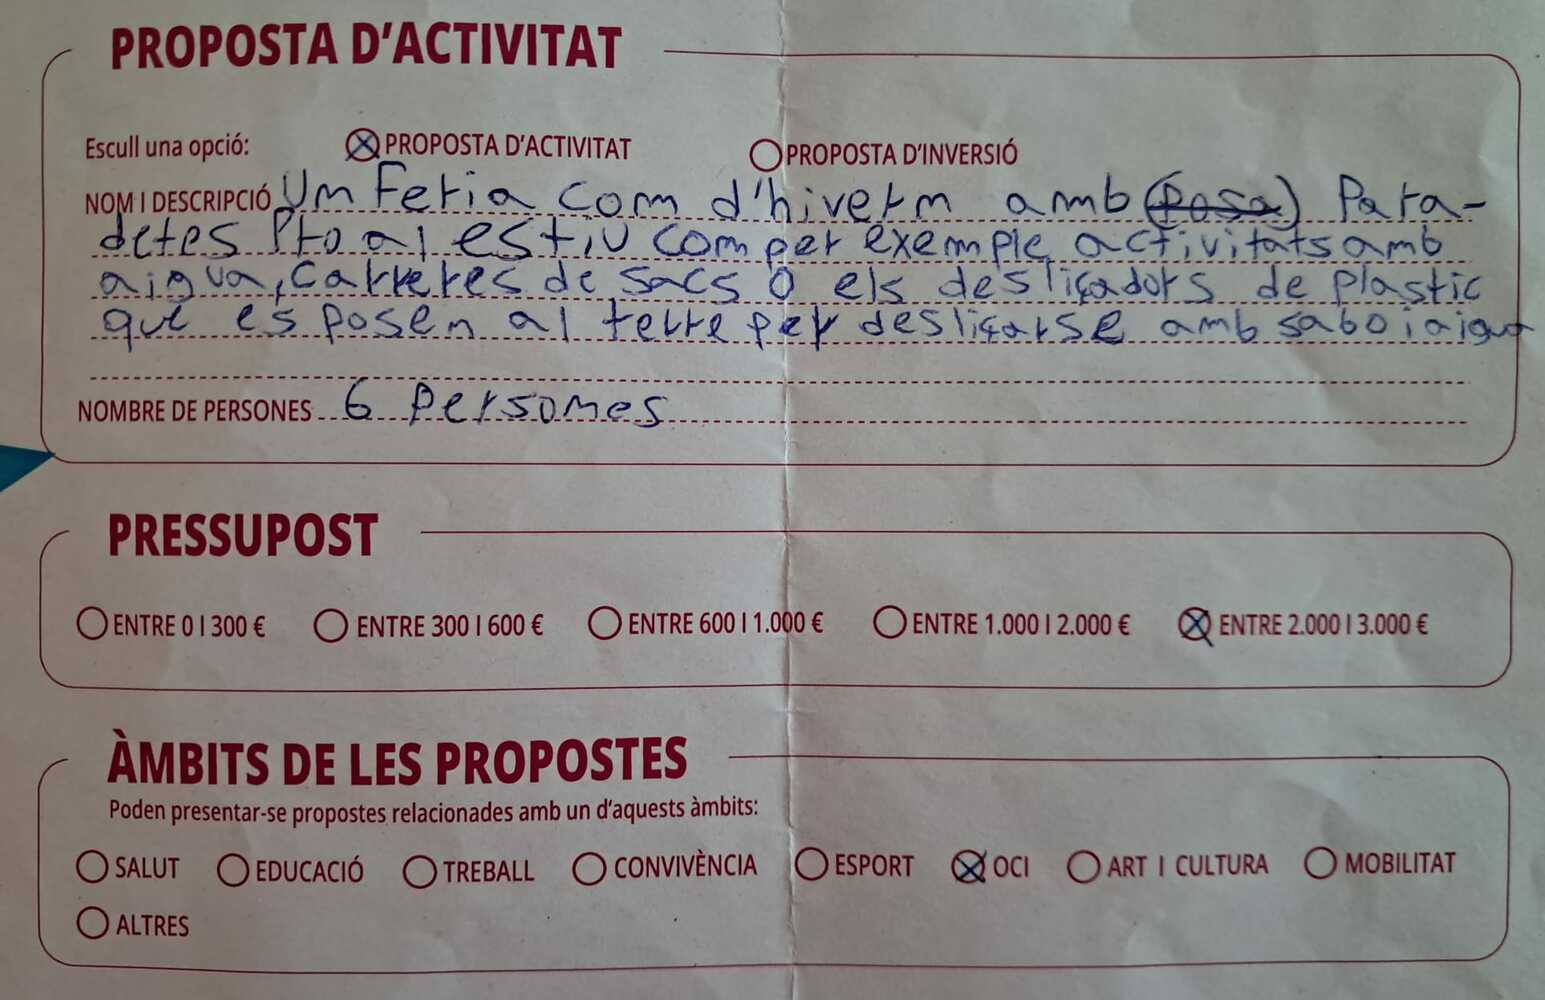 PROPOSTA D'ACTIVITAT
Escull una opció: PROPOSTA D'ACTIVITAT PROPOSTA D'INVERSIÓ
NOM I DESCRIPCIÓ Um Feria com d'hivern amb (posa) Para-
detes Pro al estiu com per exemple activitats amb
aigua, carreres de sacs o els desliçadors de plastic
que es posen al terre per desliçarse amb sabo i aigua
NOMBRE DE PERSONES 6 Persomes
PRESSUPOST
ENTRE 0 I 300 € ENTRE 300 I 600 € ENTRE 600 I 1.000 € ENTRE 1.000 I 2.000 € ENTRE 2.000 I 3.000 €
ÀMBITS DE LES PROPOSTES
Poden presentar-se propostes relacionades amb un d'aquests àmbits:
SALUT EDUCACIÓ TREBALL CONVIVÈNCIA ESPORT OCI ART I CULTURA MOBILITAT
ALTRES